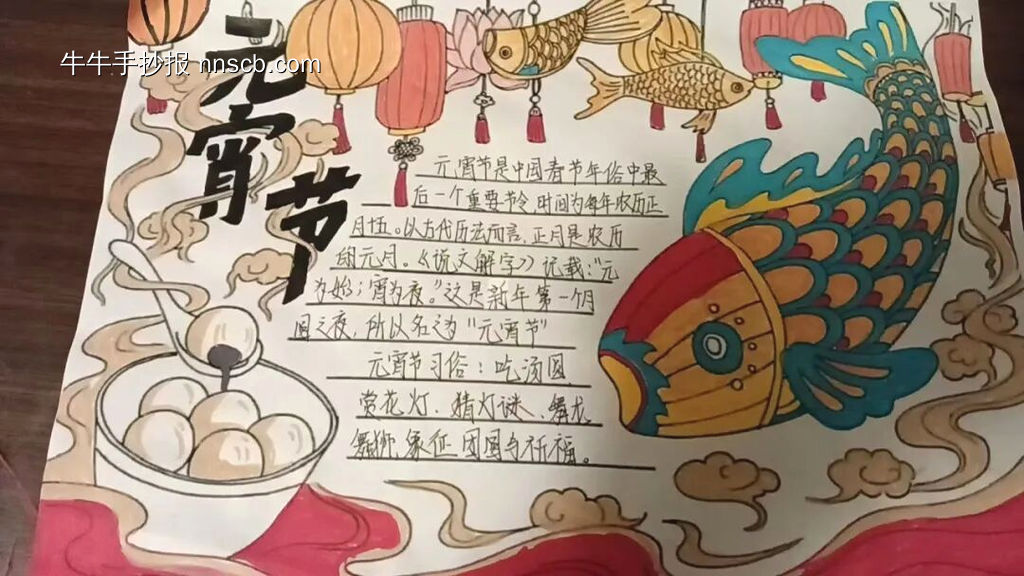 牛牛手抄报 nnscb.com
元宵节
元宵节是中国春节年俗中最
后一个重要节令,时间为每年农历正
月十五。以古代历法而言,正月是农历
的元月。《说文解字》记载:“元
为始;宵为夜。”这是新年第一个月
圆之夜,所以名之为“元宵节”
元宵节习俗:吃汤圆、
赏花灯、猜灯谜、舞龙
舞狮,象征团圆与祈福。